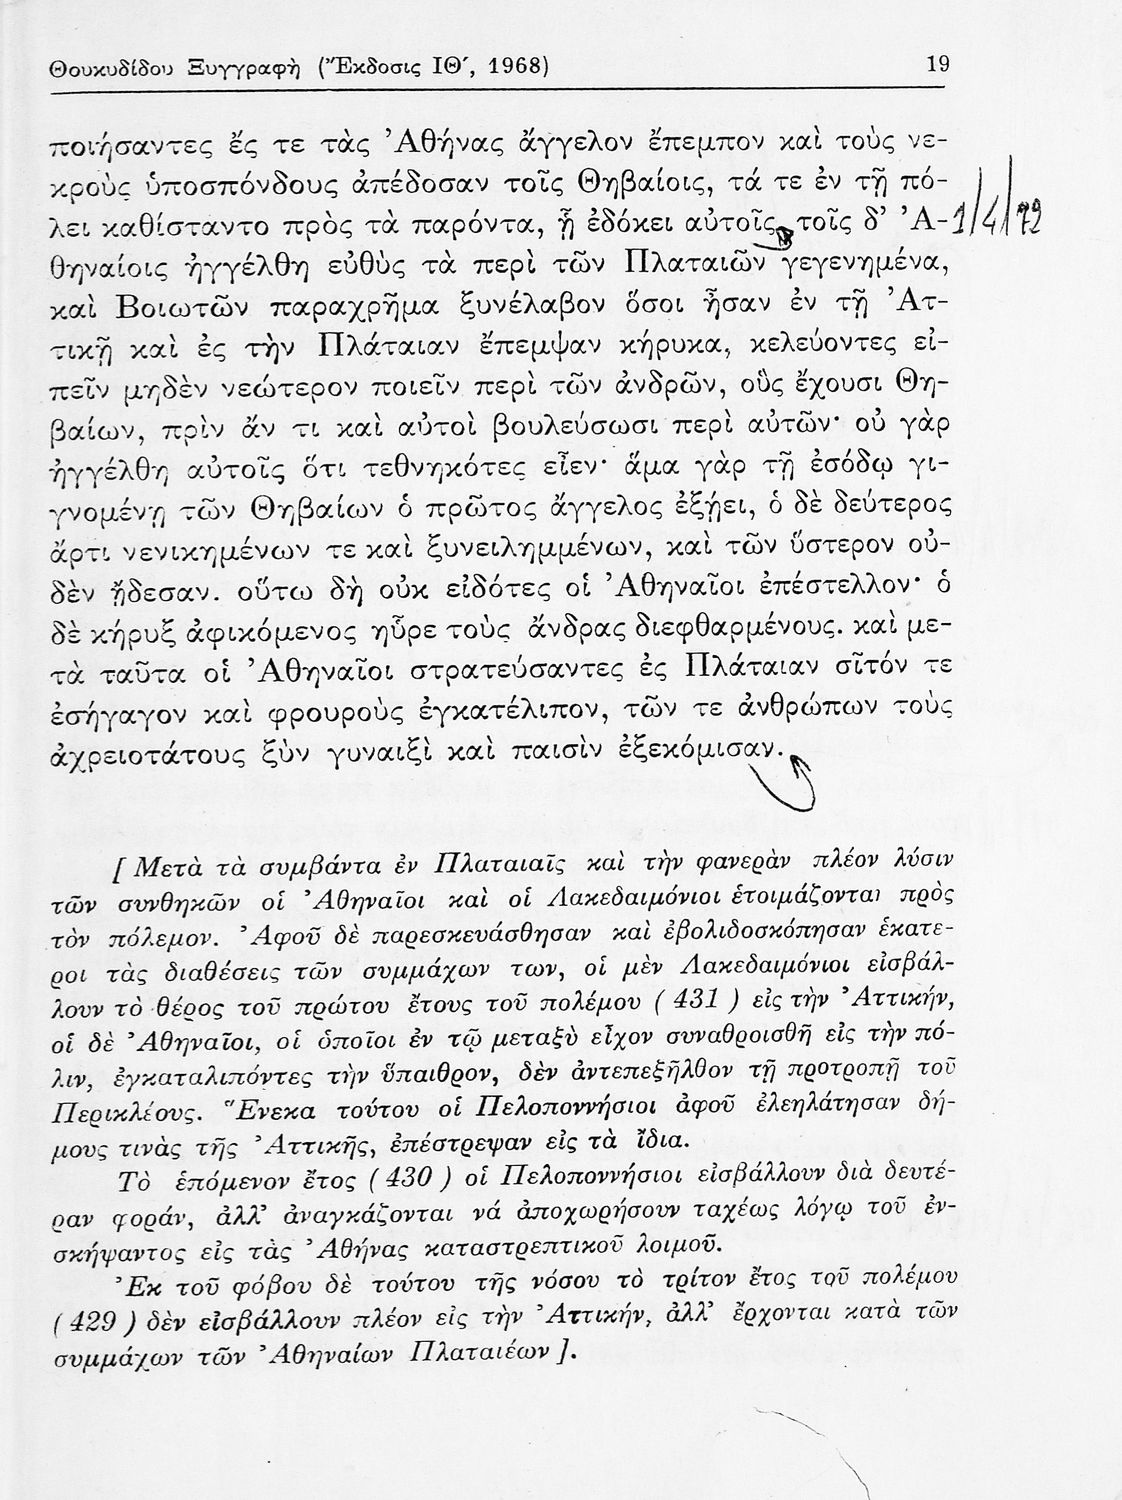 Θουκυδίδου Ξυγγραφὴ (Ἔκδοσις ΙΘ´, 1968) 19
ποιήσαντες ἔς τε τὰς Ἀθήνας ἄγγελον ἔπεμπον καὶ τοὺς νε-
κροὺς ὑποσπόνδους ἀπέδοσαν τοῖς Θηβαίοις, τά τε ἐν τῇ πό-
λει καθίσταντο πρὸς τὰ παρόντα, ᾗ ἐδόκει αὐτοῖς. τοῖς δ’ Ἀ- 1/4/72
θηναίοις ἠγγέλθη εὐθὺς τὰ περὶ τῶν Πλαταιῶν γεγενημένα,
καὶ Βοιωτῶν παραχρῆμα ξυνέλαβον ὅσοι ἦσαν ἐν τῇ Ἀτ-
τικῇ καὶ ἐς τὴν Πλάταιαν ἔπεμψαν κήρυκα, κελεύοντες εἰ-
πεῖν μηδὲν νεώτερον ποιεῖν περὶ τῶν ἀνδρῶν, οὓς ἔχουσι Θη-
βαίων, πρὶν ἄν τι καὶ αὐτοὶ βουλεύσωσι περὶ αὐτῶν· οὐ γὰρ
ἠγγέλθη αὐτοῖς ὅτι τεθνηκότες εἶεν· ἅμα γὰρ τῇ ἐσόδῳ γι-
γνομένῃ τῶν Θηβαίων ὁ πρῶτος ἄγγελος ἐξῄει, ὁ δὲ δεύτερος
ἄρτι νενικημένων τε καὶ ξυνειλημμένων, καὶ τῶν ὕστερον οὐ-
δὲν ᾔδεσαν. οὕτω δὴ οὐκ εἰδότες οἱ Ἀθηναῖοι ἐπέστελλον· ὁ
δὲ κήρυξ ἀφικόμενος ηὗρε τοὺς ἄνδρας διεφθαρμένους. καὶ με-
τὰ ταῦτα οἱ Ἀθηναῖοι στρατεύσαντες ἐς Πλάταιαν σῖτόν τε
ἐσήγαγον καὶ φρουροὺς ἐγκατέλιπον, τῶν τε ἀνθρώπων τοὺς
ἀχρειοτάτους ξὺν γυναιξὶ καὶ παισὶν ἐξεκόμισαν.
[ Μετὰ τὰ συμβάντα ἐν Πλαταιαῖς καὶ τὴν φανερὰν πλέον λύσιν
τῶν συνθηκῶν οἱ Ἀθηναῖοι καὶ οἱ Λακεδαιμόνιοι ἑτοιμάζονται πρὸς
τὸν πόλεμον. Ἀφοῦ δὲ παρεσκευάσθησαν καὶ ἐβολιδοσκόπησαν ἑκατε-
ροι τὰς διαθέσεις τῶν συμμάχων των, οἱ μὲν Λακεδαιμόνιοι εἰσβάλ-
λουν τὸ θέρος τοῦ πρώτου ἔτους τοῦ πολέμου ( 431 ) εἰς τὴν Ἀττικήν,
οἱ δὲ Ἀθηναῖοι, οἱ ὁποῖοι ἐν τῷ μεταξὺ εἶχον συναθροισθῆ εἰς τὴν πό-
λιν, ἐγκαταλιπόντες τὴν ὕπαιθρον, δὲν ἀντεπεξῆλθον τῇ προτροπῇ τοῦ
Περικλέους. Ἕνεκα τούτου οἱ Πελοποννήσιοι ἀφοῦ ἐλεηλάτησαν δή-
μους τινὰς τῆς Ἀττικῆς, ἐπέστρεψαν εἰς τὰ ἴδια.
Τὸ ἑπόμενον ἔτος ( 430 ) οἱ Πελοποννήσιοι εἰσβάλλουν διὰ δευτέ-
ραν φοράν, ἀλλ’ ἀναγκάζονται νά ἀποχωρήσουν ταχέως λόγῳ τοῦ ἐν-
σκήψαντος εἰς τὰς Ἀθήνας καταστρεπτικοῦ λοιμοῦ.
Ἐκ τοῦ φόβου δὲ τούτου τῆς νόσου τὸ τρίτον ἔτος τοῦ πολέμου
( 429 ) δὲν εἰσβάλλουν πλέον εἰς τὴν Ἀττικήν, ἀλλ’ ἔρχονται κατὰ τῶν
συμμάχων τῶν Ἀθηναίων Πλαταιέων ].